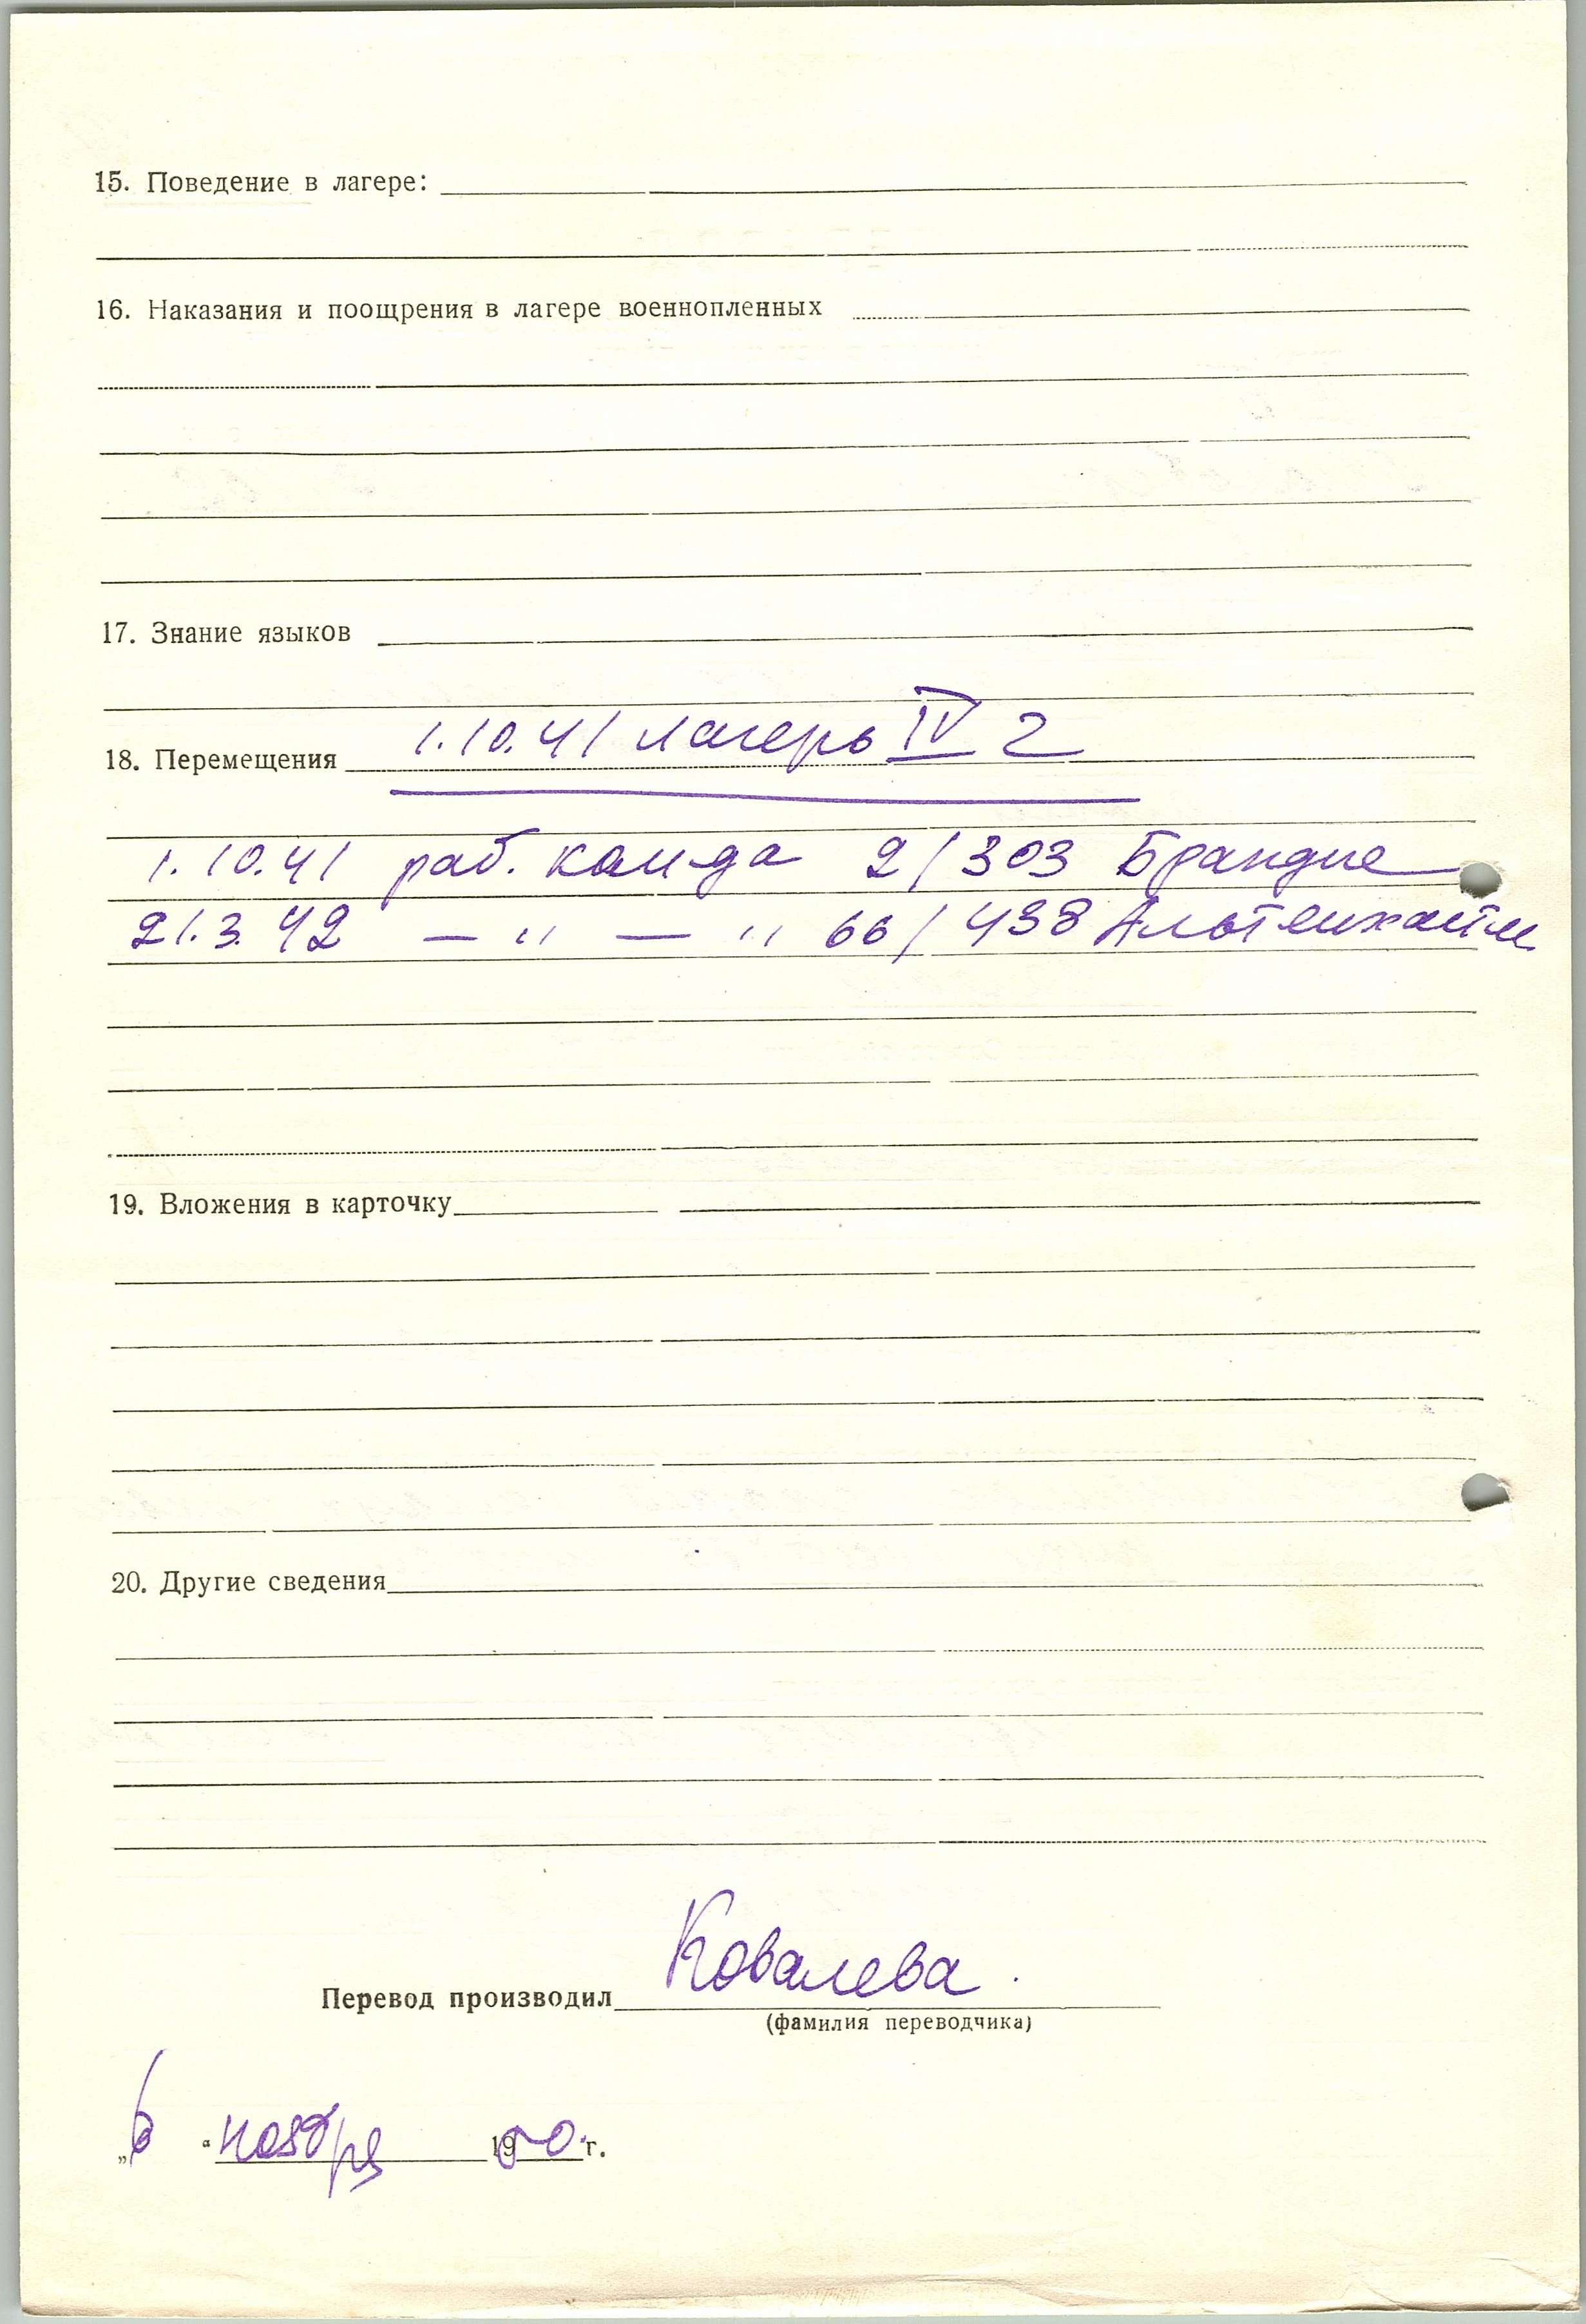 15. Поведение в лагере:
16. Наказания и поощрения в лагере военнопленных
17. Знание языков
18. Перемещения 1.10.41 лагерь IV г
1.10.41 раб. кам-да 2/303 Брандис
21.3.42 — " — " 66/438 Альтенхайм
19. Вложения в карточку
20. Другие сведения
Перевод производил Ковалева.
(фамилия переводчика)
„6 “ ноября 1950 г.